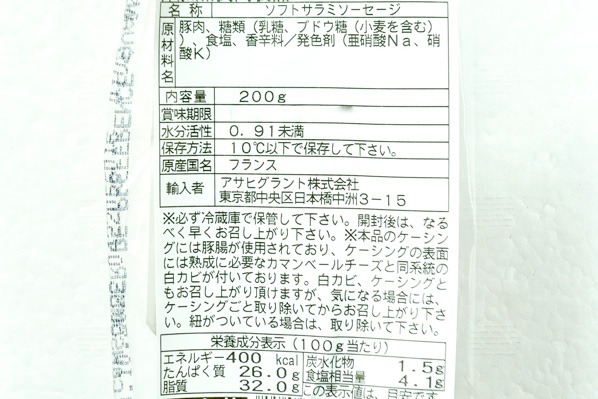 名 称 ソフトサラミソーセージ
原材料名 豚肉、糖類（乳糖、ブドウ糖（小麦を含む）
）、食塩、香辛料／発色剤（亜硝酸Ｎａ、硝
酸Ｋ）
内容量 200g
賞味期限
水分活性 ０．９１未満
保存方法 10℃以下で保存して下さい。
原産国名 フランス
輸入者 アサヒグラント株式会社
東京都中央区日本橋中洲３－１５
※必ず冷蔵庫で保管して下さい。開封後は、なる
べく早くお召し上がり下さい。※本品のケーシン
グには豚腸が使用されており、ケーシングの表面
には熟成に必要なカマンベールチーズと同系統の
白カビが付いております。白カビ、ケーシングと
もお召し上がり頂けますが、気になる場合には、
ケーシングごと取り除いてからお召し上がり下さ
い。紐がついている場合は、取り除いて下さい。
栄養成分表示（100g当たり）
エネルギー400 kcal 炭水化物 1.5g
たんぱく質 26.0g 食塩相当量 4.1g
脂質 32.0g この表示値は、目安です